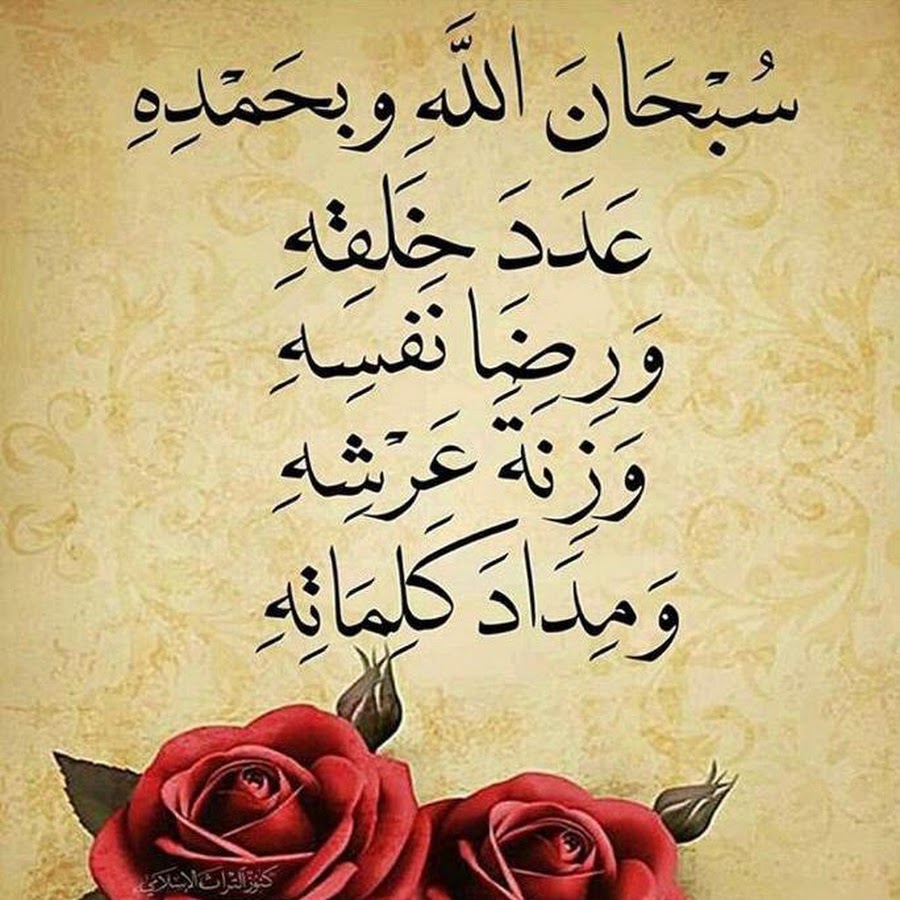 سُبْحَانَ اللَّهِ وبحَمْدِهِ
عَدَدَ خَلقِتهِ
وَرِضَا نَفسِهِ
وَزِنَة عَرْشِهِ
وَمِدَادَ كَلِمَاتِهِ
كنوز التراث الإسلامي